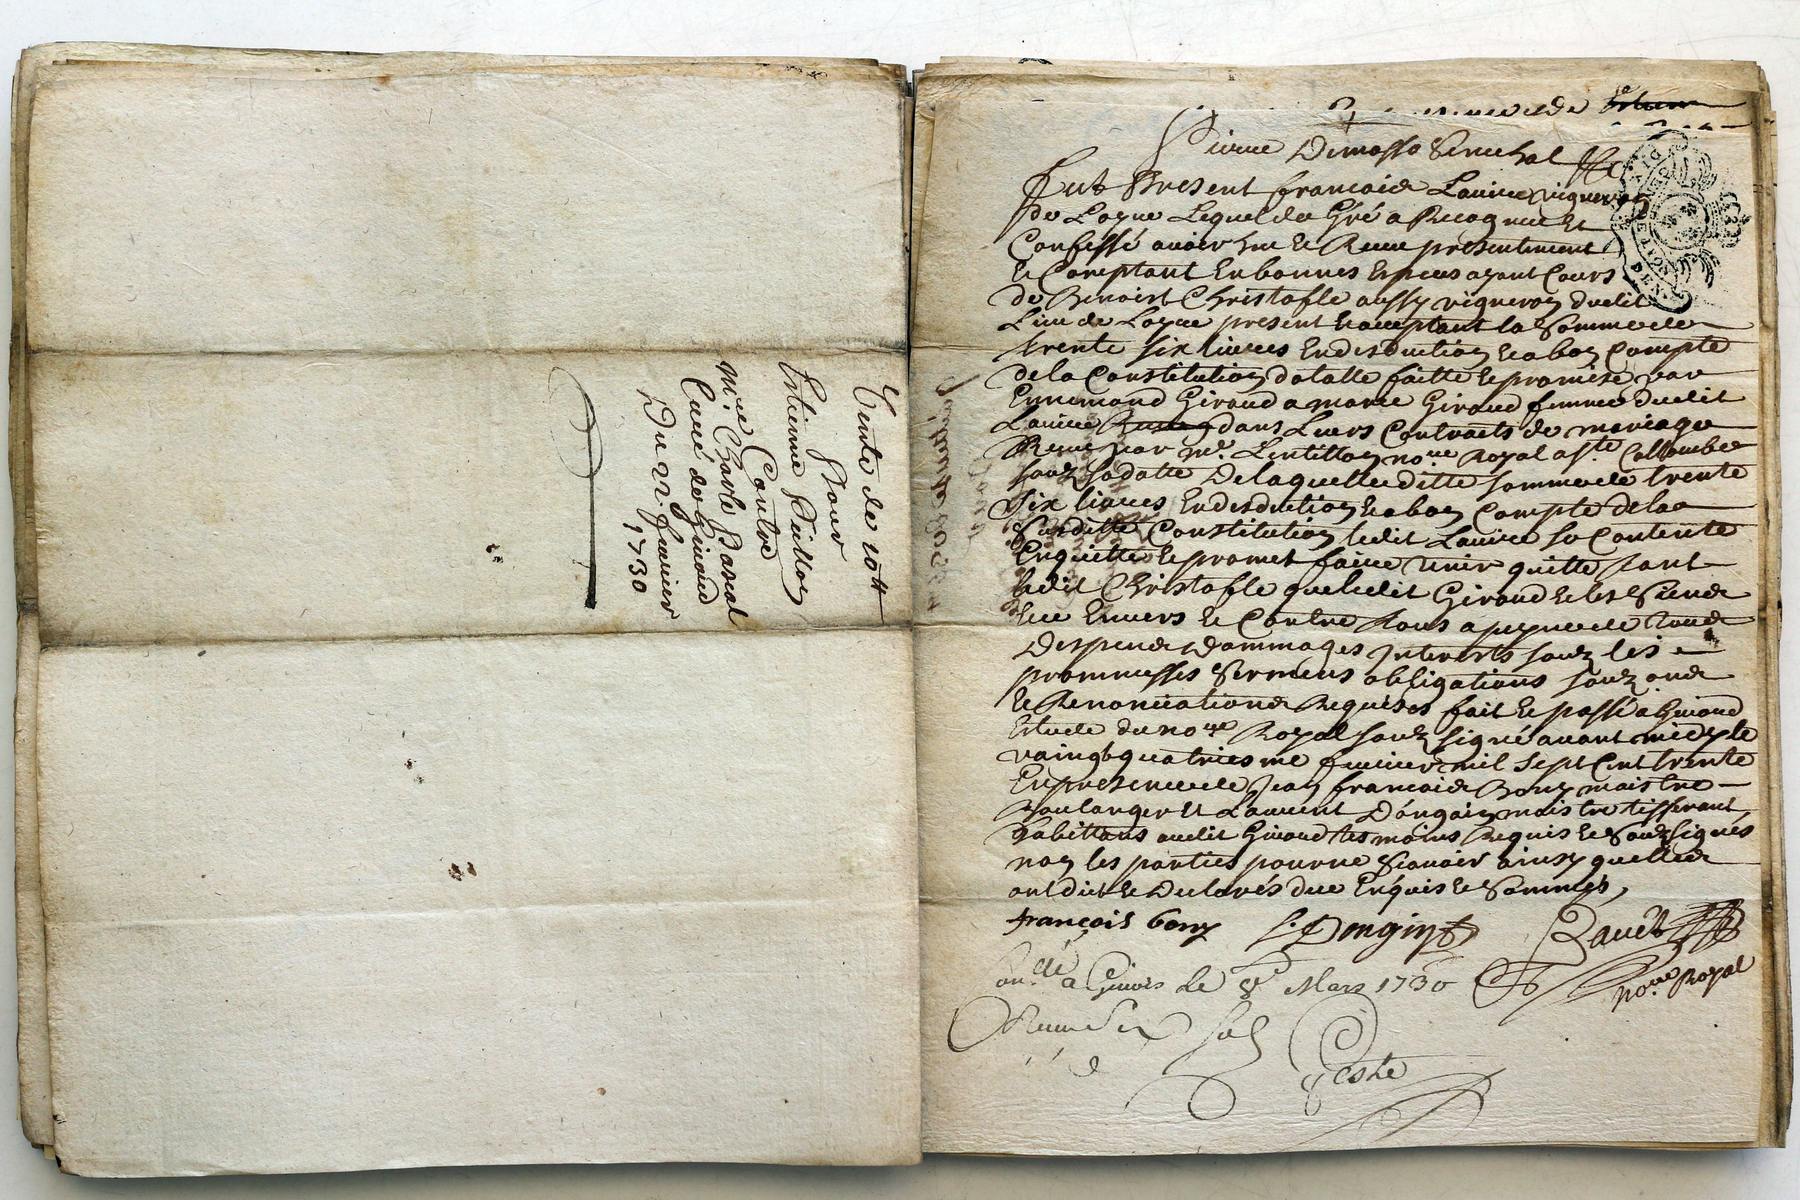 Vente de 10tt
Pour
Estienne
Contre
Mre Charle Pascal
Curé de Givord
Du 22e Janvier
1730
Pierre Dimasso Senechal
Fut Present francois Lavire vigneron
de Loyre Lequel de Gré a Recognu et
Confessé avoir hue et Receu presentement
et Comptant En bonnes Espèces ayant Cours
de Benoist Christofle aussy vigneron dudit
Lieu de Loyre present et acceptant la Somme de
trente six livres En desduction et a bon Compte
de la Constitution dotalle faitte et promise par
Ennemond Giroud a marie Giroud femme dudit
Lavire dans Leurs Contracts de mariage
Receu par me. Lentillon nore Royal a ste Collombe
souz sa datte De laquelle ditte somme de trente
six livres En desduction et a bon Compte de la
Susditte Constitution ledit Lavire se Contente
En quitte et promet faire tenir quitte tant
ledit Christofle que ledit Giroud et les Siens
Envers et Contre tous a peyne de tous
Despens Dommages Interests souz les
promesses Sermens obligations souz
et Renonciations Requises fait et passé a Givord
Estude du nore Royal souz signé avant midy le
vaingt quatriesme Janvier mil sept Cent trente
En presence de Jean francois Bony maistre
Boulanger et Laurent Dongain maistre tisserant
habittans audit Givord tesmoins Requis et Souz Signés
non les parties pour ne Scavoir ainsy quelles
ont dit et Declarés de ce Enquis et Sommés,
françois bony L. Dongin
nore Royal
a Givors le 8e Mars 1730
Receu Six sols